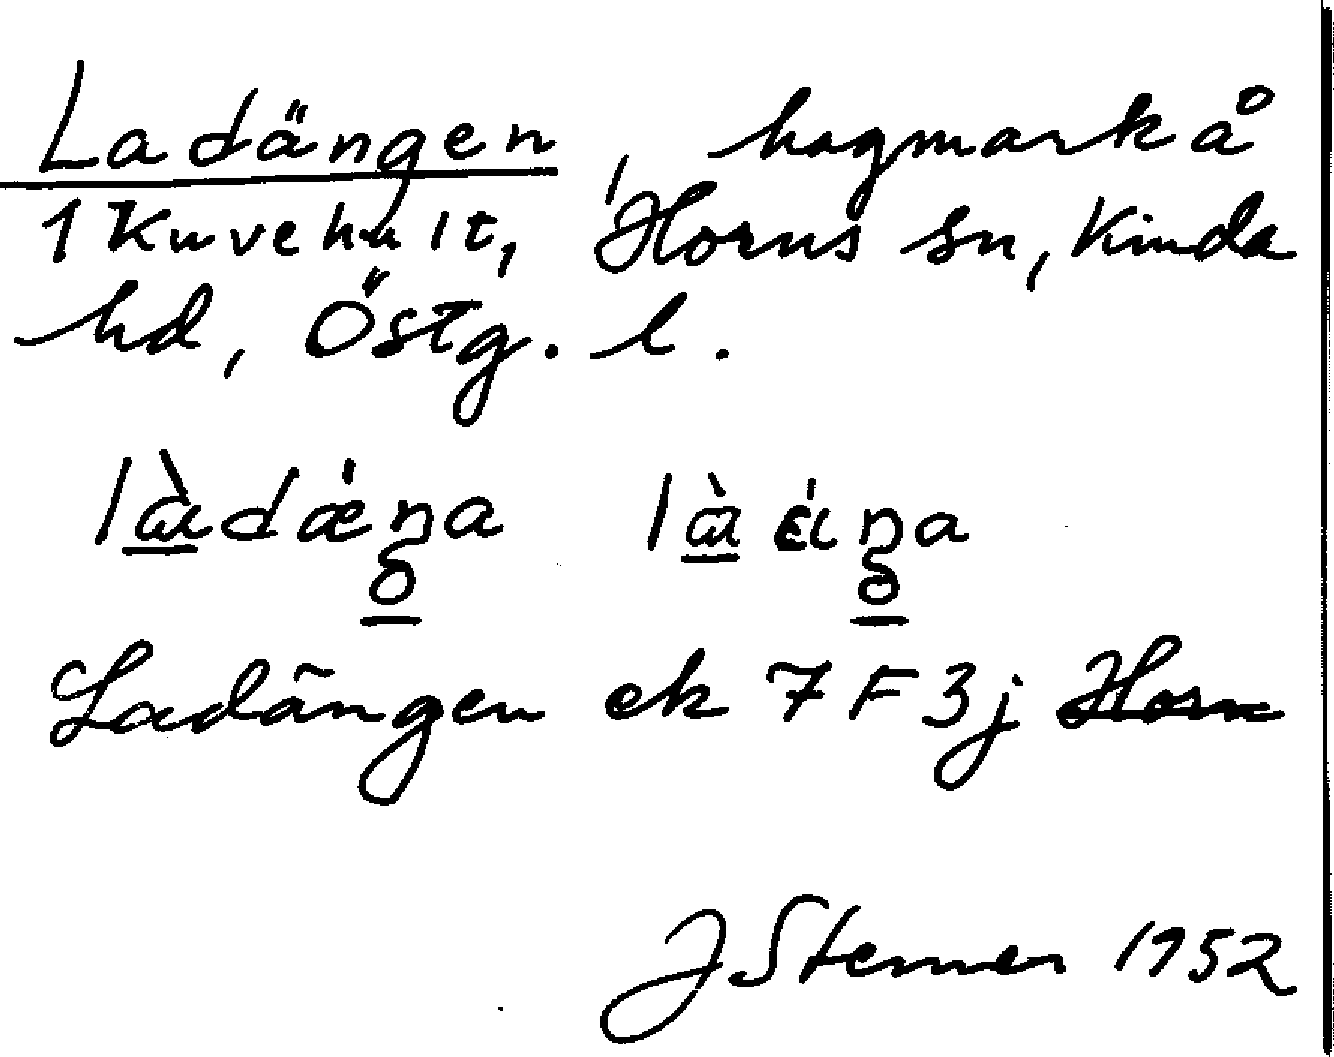 Ladängen, hagmark å
1 Kuvehult, Horns sn, Kinda
hd, Östg. l.
Ladängen ek 7 F 3j Horn
J Stenner 1952